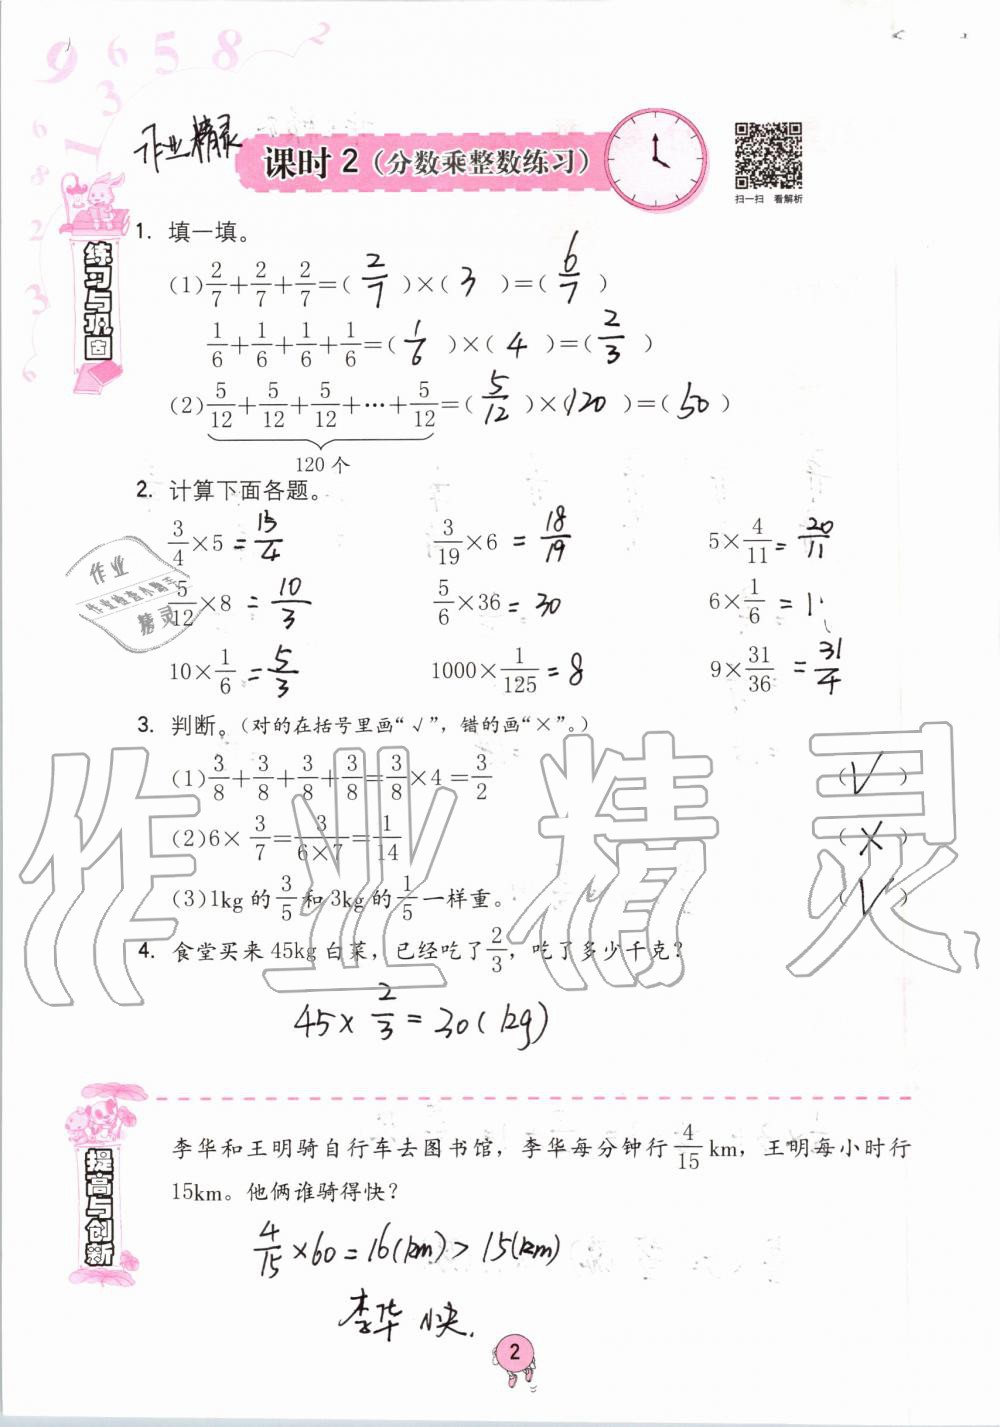 9 6 5 8 2
3
6
8
1
2
3
6
作业精灵
课时 2（分数乘整数练习）
扫一扫 看解析
练习与巩固
1. 填一填。
(1) 2/7+2/7+2/7=( 2/7 )×( 3 )=( 6/7 )
1/6+1/6+1/6+1/6=( 1/6 )×( 4 )=( 2/3 )
(2) 5/12+5/12+5/12+…+5/12=( 5/12 )×( 120 )=( 50 )
120 个
2. 计算下面各题。
3/4×5 = 15/4 3/19×6 = 18/19 5×4/11 = 20/11
5/12×8 = 10/3 5/6×36 = 30 6×1/6 = 1
10×1/6 = 5/3 1000×1/125 = 8 9×31/36 = 31/4
作业
作业检查小助手
精灵
3. 判断。（对的在括号里画“√”，错的画“×”。）
(1) 3/8+3/8+3/8+3/8=3/8×4=3/2 ( √ )
(2) 6×3/7=3/(6×7)=1/14 ( × )
(3) 1kg 的 3/5 和 3kg 的 1/5 一样重。 ( √ )
作业精灵
4. 食堂买来 45kg 白菜，已经吃了 2/3，吃了多少千克？
45×2/3=30(kg)
提高与创新
李华和王明骑自行车去图书馆，李华每分钟行 4/15 km，王明每小时行
15km。他俩谁骑得快？
4/15×60=16(km)>15(km)
李华快.
2